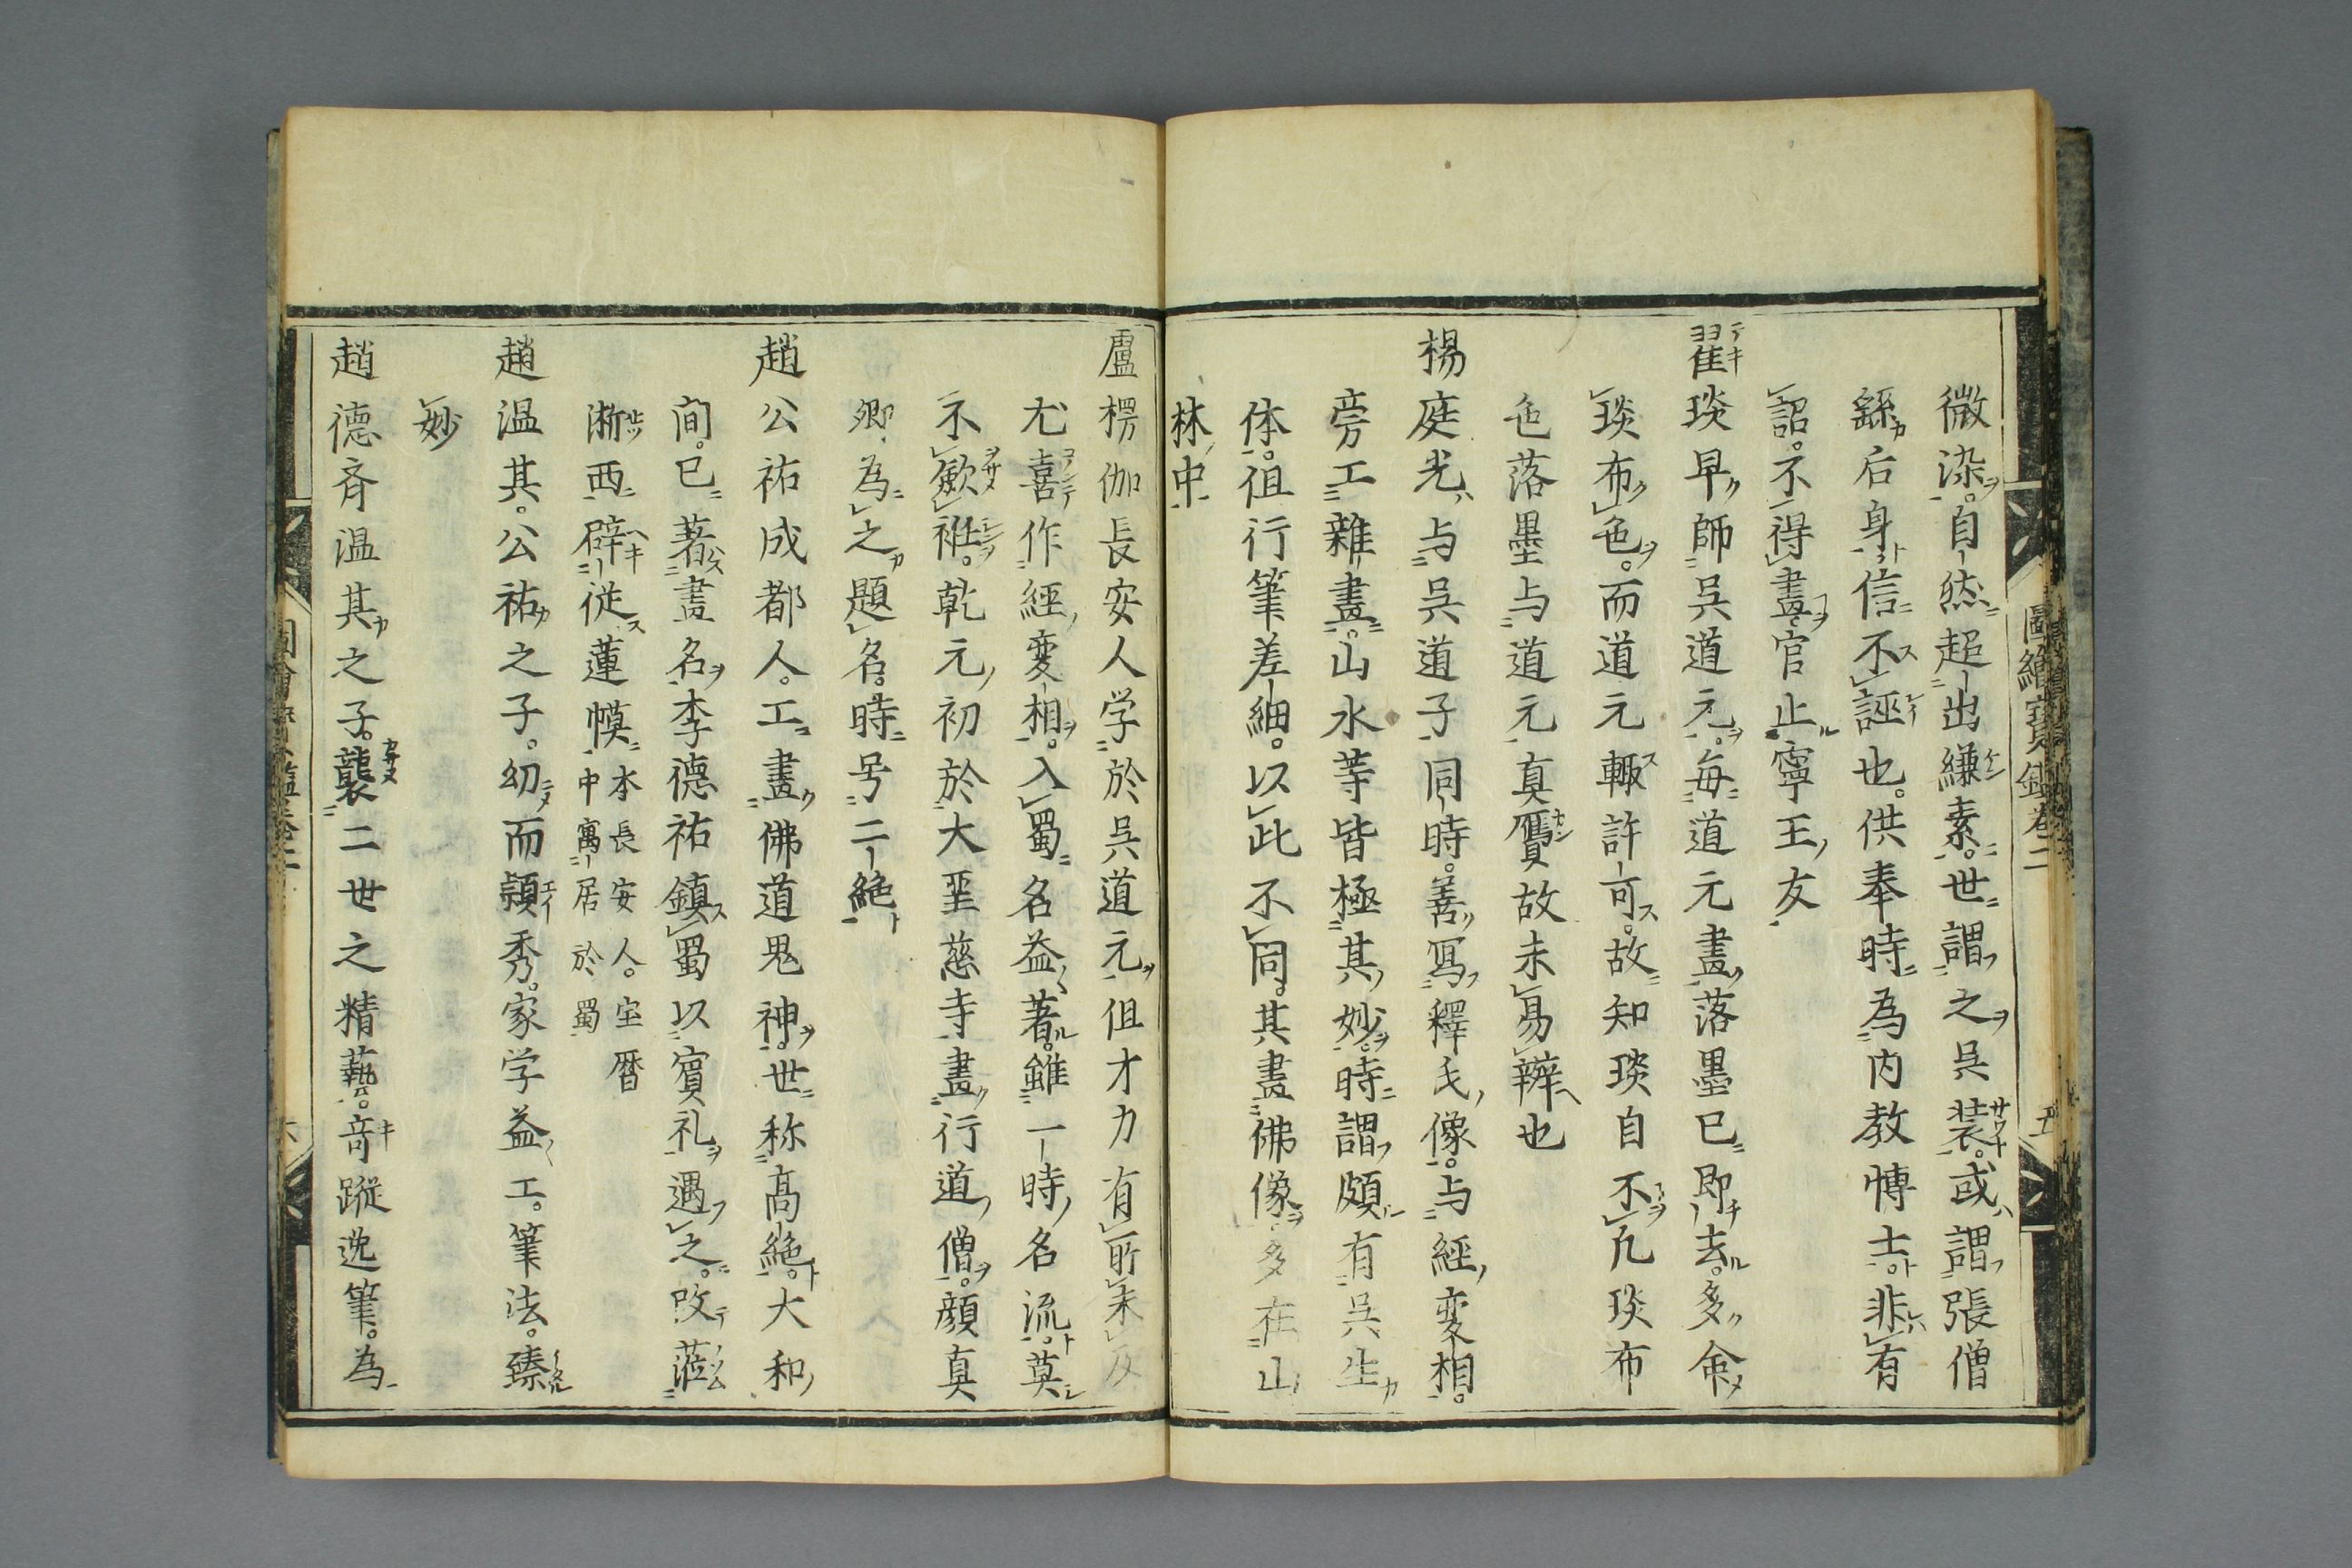 微染。自然超出縑素。世謂之呉装。或謂張僧
繇后身。信不誣也。供奉時為内教博士。非有
詔。不得畫。官止寧王友
翟琰早師呉道元。每道元畫落墨已即去。多命
琰布色。而道元輙許可。故知琰自不凢琰布
色落墨与道元真贋故未易辧也
楊庭光与呉道子同時。善寫釋氏像。与經變相。
旁工雜畫。山水等皆極其妙。時謂頗有呉生
体。但行筆差細。以此不同。其畫佛像多在山
林中
圖繪寳鑑卷二
五
盧楞伽長安人学於呉道元。但才力有所未及
尤喜作經變相。入蜀名益著。雖一時名流。莫
不歛衽。乾元初於大聖慈寺畫行道僧。顔真
卿為之題名。時号二絶
趙公祐成都人。工畫佛道鬼神。世称高絶。大和
間。已著畫名。李德祐鎮蜀以賓礼遇之。改蒞
淅西辟從蓮幙
本長安人。宝暦
中寓居於蜀
趙温其。公祐之子。幼而頴秀。家学益工。筆法。臻
妙
趙德斉温其之子。襲二世之精藝。奇蹤逸筆。為
六